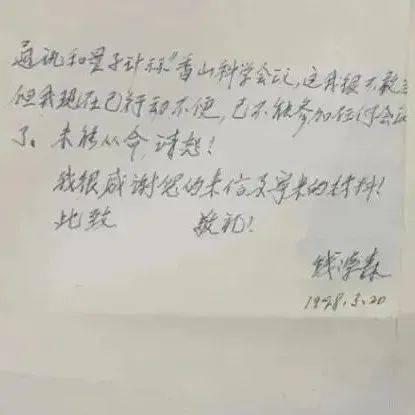 通讯和量子计算"香山科学会议,这我很不敢
但我现在已行动不便,已不能参加任何会议
了。未能从命,请恕!
我很感谢您的来信及寄来的材料!
此致 敬礼!
钱学森
1998.5.20